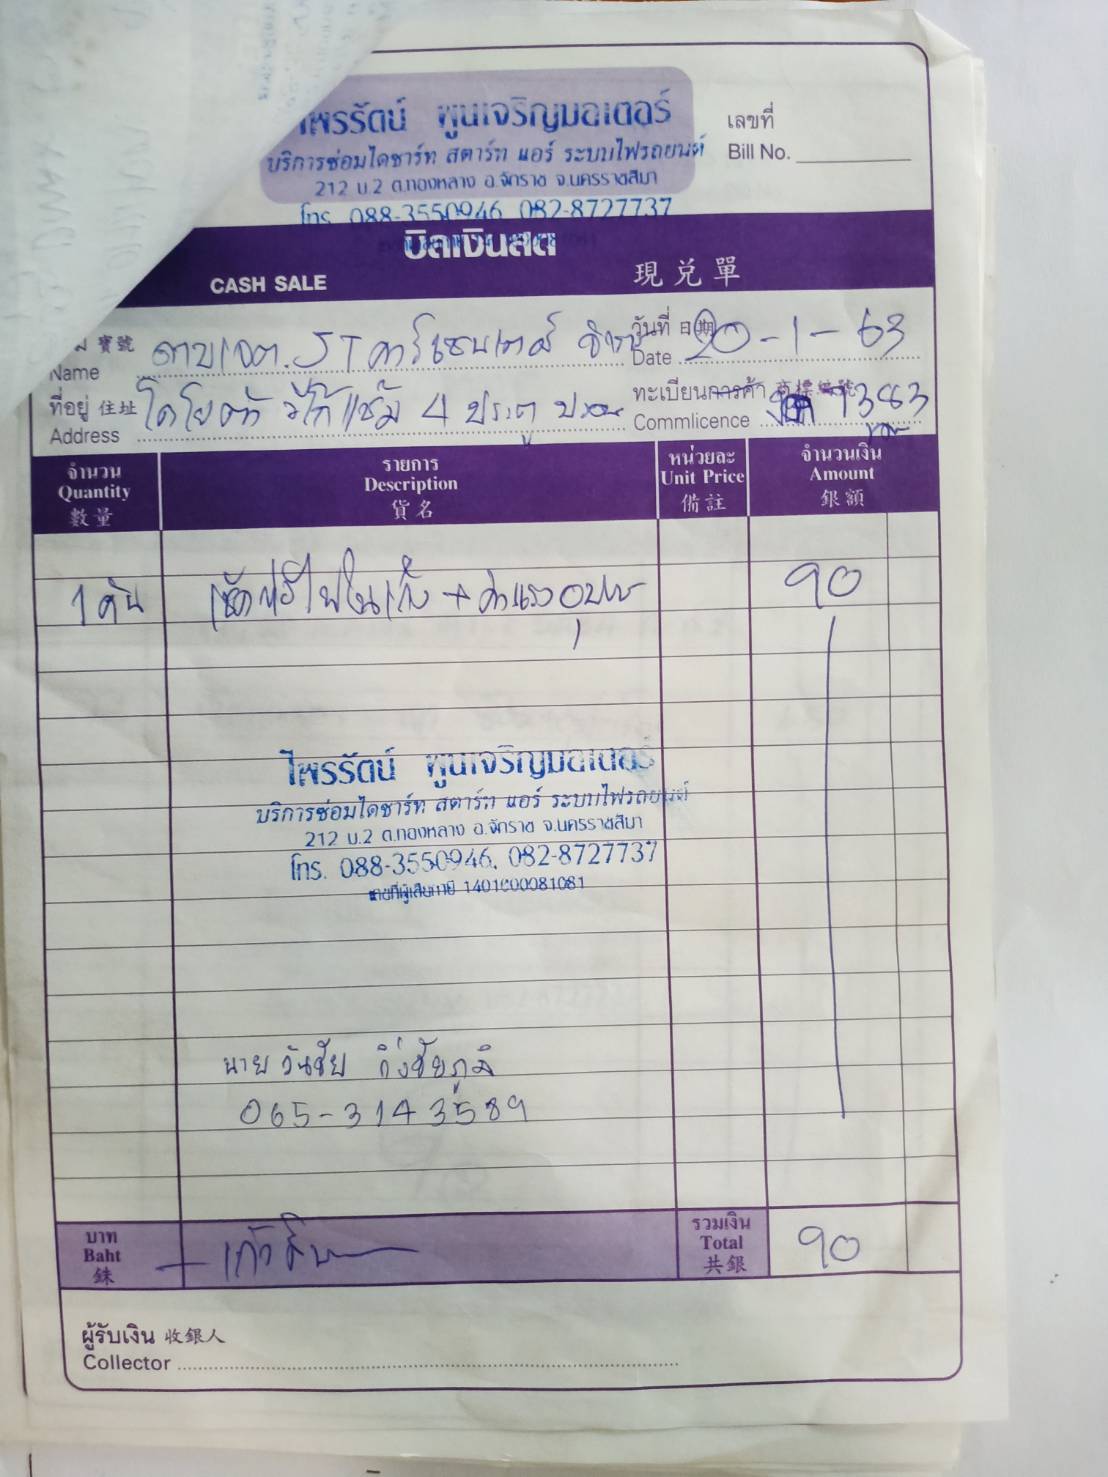 ไพรรัตน์ พูนเจริญมอเตอร์
บริการซ่อมไดชาร์ท สตาร์ท แอร์ ระบบไฟรถยนต์
212 ม.2 ต.ทองหลาง อ.จักราช จ.นครราชสีมา
โทร. 088-3550946, 082-8727737
เลขที่
Bill No.
บิลเงินสด
CASH SALE
現兌單
寶號
Name
วันที่ 日期
Date 20-1-63
ที่อยู่ 住址
Address โตโยต้า วีโก้แช้ม 4 ประตู
ทะเบียนการค้า 商標編號
Commlicence 1383
จำนวน
Quantity
數量
รายการ
Description
貨名
หน่วยละ
Unit Price
備註
จำนวนเงิน
Amount
銀額
1 คัน
+ ค่าแรง
90
ไพรรัตน์ พูนเจริญมอเตอร์
บริการซ่อมไดชาร์ท สตาร์ท แอร์ ระบบไฟรถยนต์
212 ม.2 ต.ทองหลาง อ.จักราช จ.นครราชสีมา
โทร. 088-3550946, 082-8727737
เลขที่ผู้เสียภาษี
นาย วันชัย กิ่งชัยภูมิ
065-3143589
บาท
Baht
銖
เก้าสิบ
รวมเงิน
Total
共銀
90
ผู้รับเงิน 收銀人
Collector